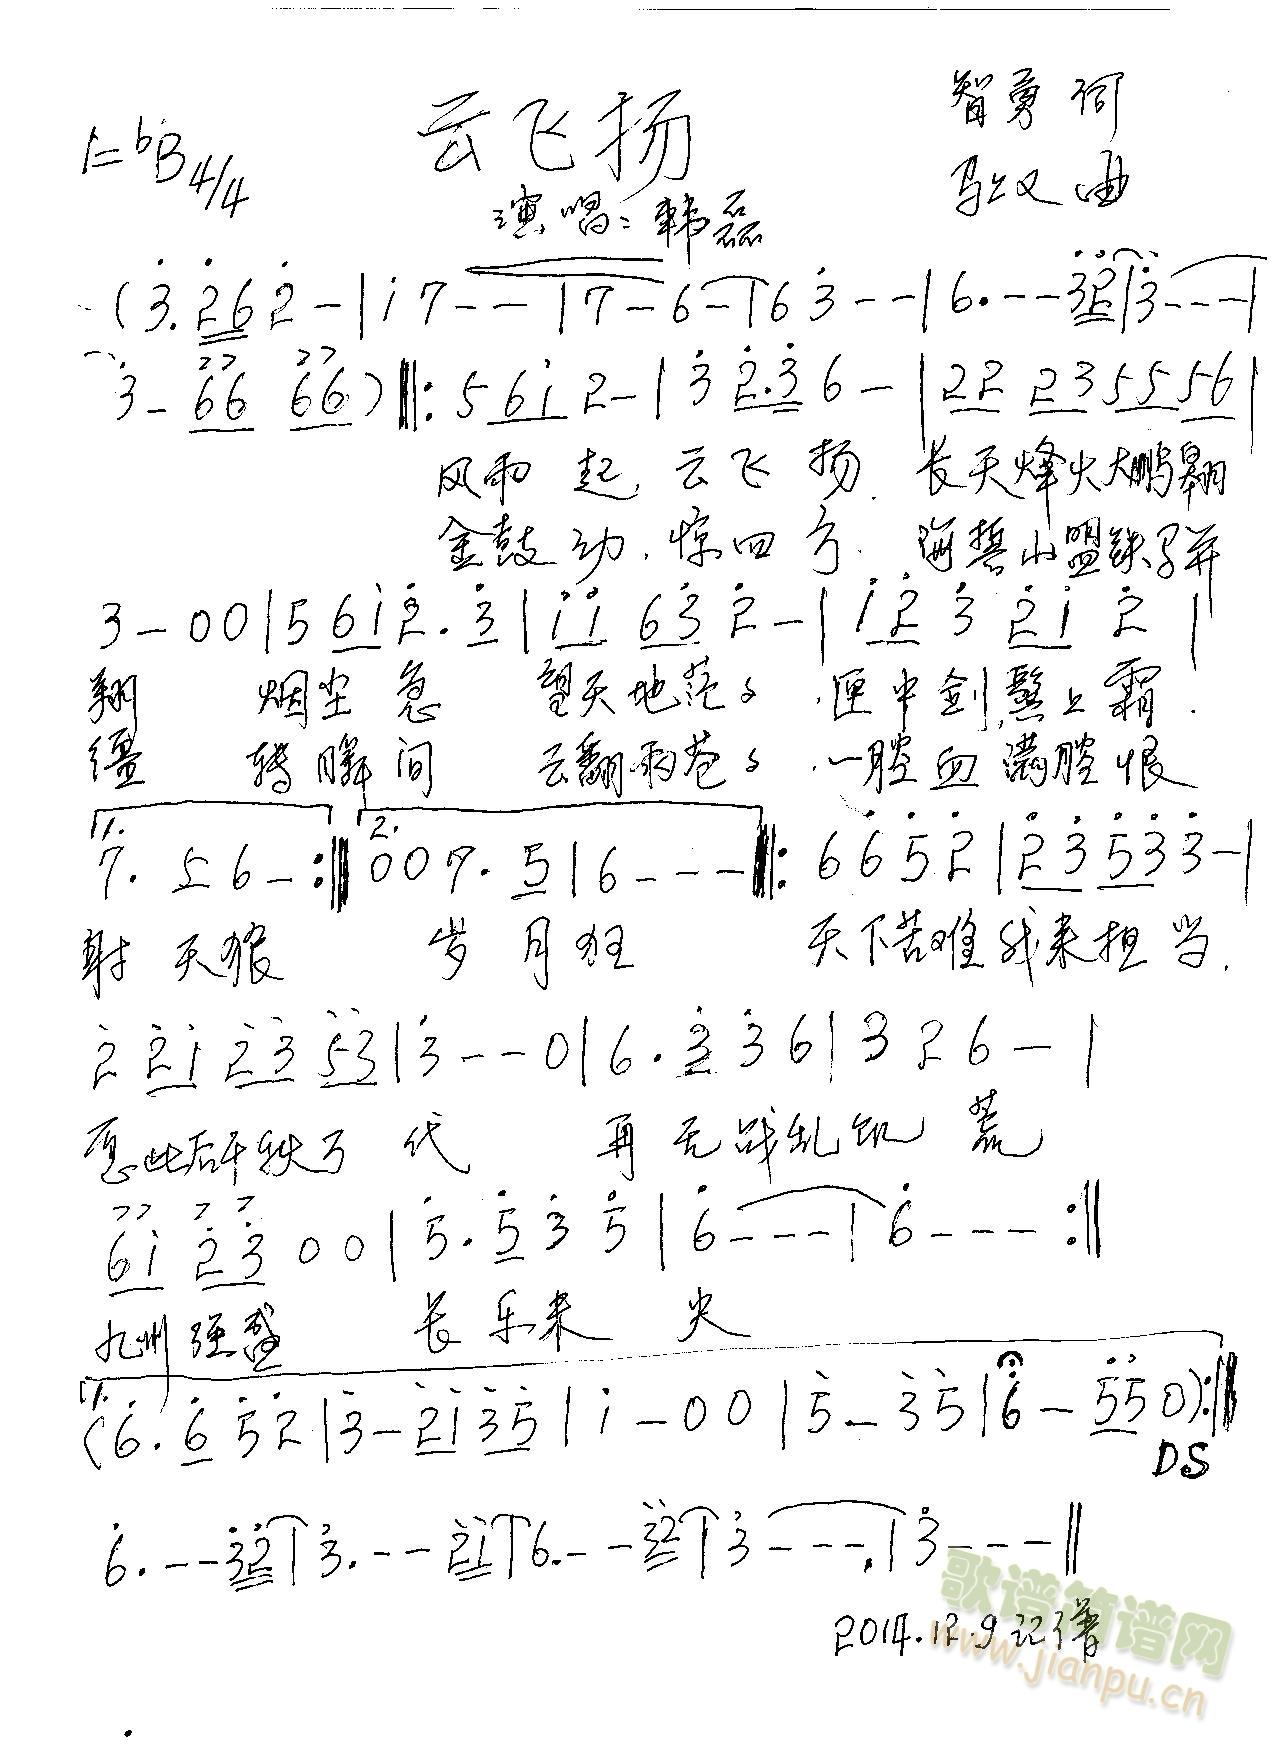 云飞扬
智勇 词
1=bB 4/4
曲
演唱：韩磊
(3. 2 6 2 - | i 7 - - | 7 - 6 - | 6 3 - - | 6. - - - 3 2 | 3 - - - |
3 - 6 6 6 6 ) ‖: 5 6 i 2 - | 3 2. 3 6 - | 2 2 2 3 5 5 5 6 |
风雨起，云飞扬．长天烽火大鹏翱
金鼓动．惊四方．海誓山盟铁马并
3 - 0 0 | 5 6 i 2. 3 | i i 6 3 2 - | i 2 3 2 i 2 |
翔 烟尘急 望天地茫々．匣中剑,鬓上霜．
缰 转瞬间 云翻雨苍々．一腔血满腔恨
1. 2.
7. 5 6 - :‖ 0 0 7. 5 | 6 - - - ‖: 6 6 5 2 | 2 3 5 3 3 - |
射天狼 岁月狂 天下苦难我来担当．
2 2 i 2 3 5 3 | 3 - - 0 | 6. 3 3 6 | 3 2 6 - |
愿此后千秋万代 再无战乱饥荒
6 i 2 3 0 0 | 5. 5 3 5 | 6 - - - | 6 - - - :‖
九州强盛 长乐未央
1.
(6. 6 5 2 | 3 - 2 i 3 5 | i - 0 0 | 5 - 3 5 | 6 - 5 5 0 ) :‖
DS
6. - - - 3 2 | 3. - - - 2 i | 6. - - - 3 2 | 3 - - - | 3 - - - ‖
2014.12.9记谱
歌谱简谱网
www.jianpu.cn